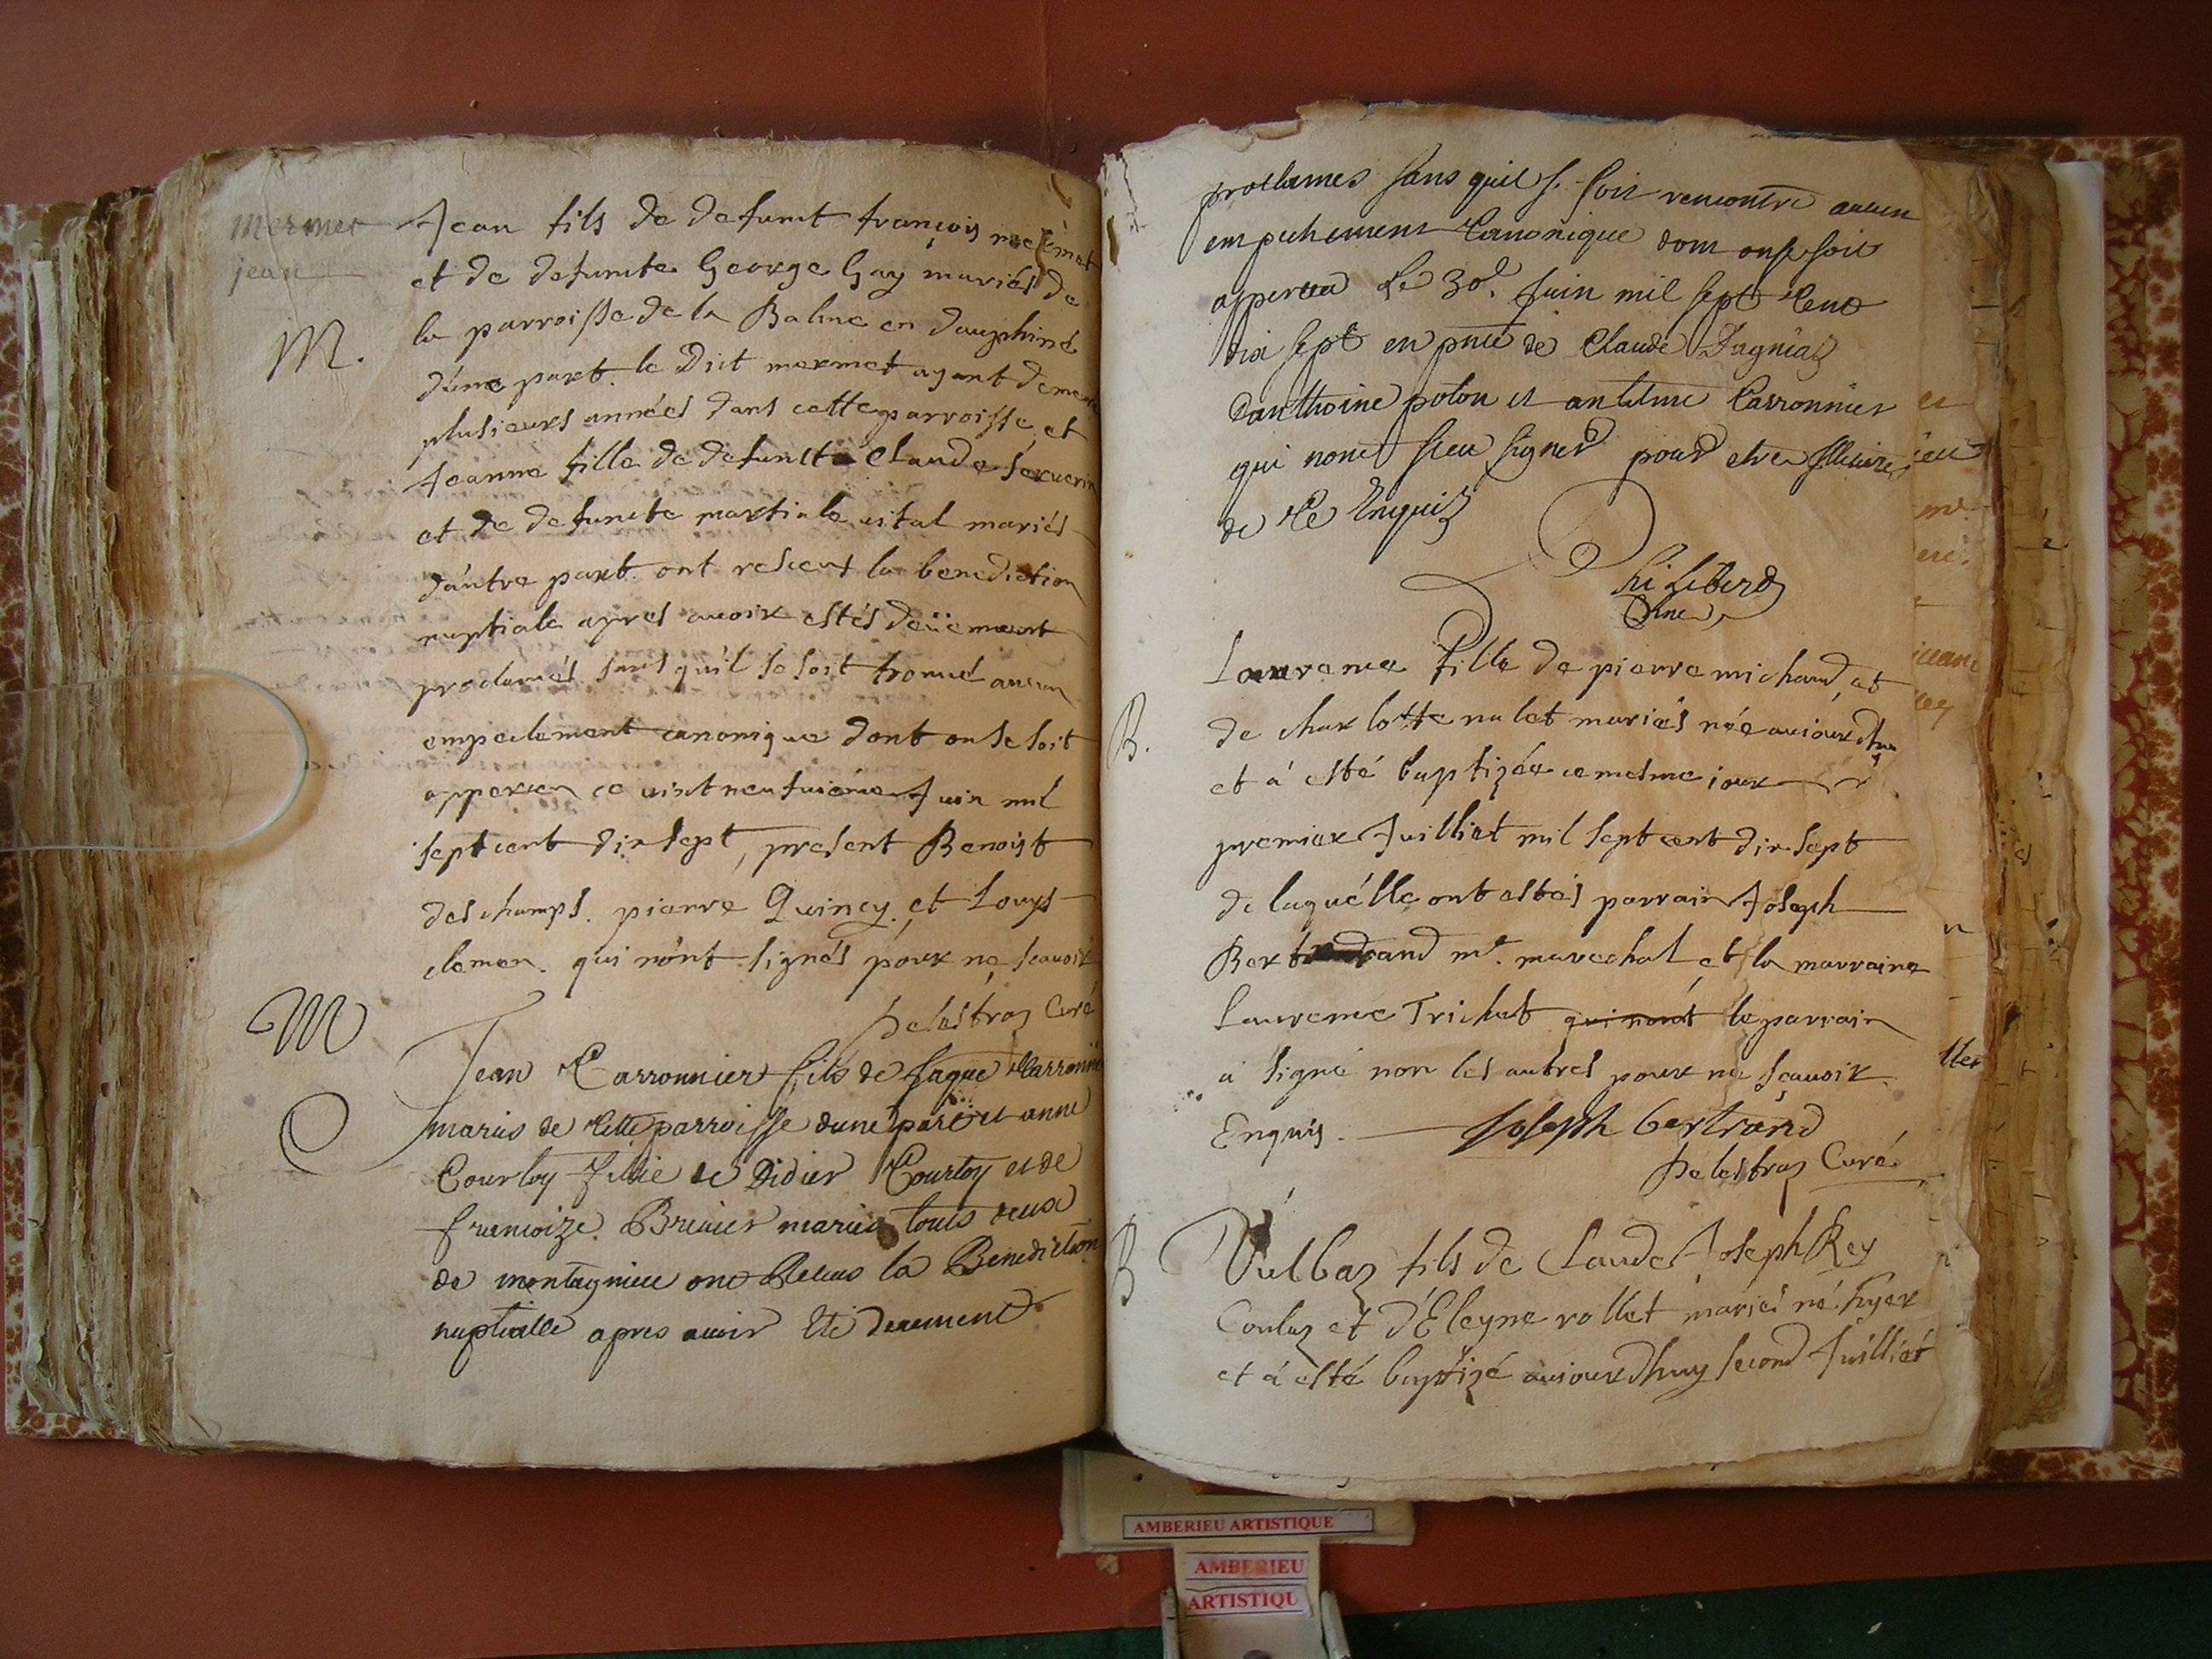 mermet
jean
M.
Jean fils de defunct françois mermet
et de defuncte George Gay mariés de
la parroisse de la Balme en dauphiné
d'une part. le Dict mermet ayant deme
plusieurs années dans cette parroisse, et
Jeanne fille de defunct Claude
et de defuncte martiale vital mariés
d'autre part. ont reseus la benediction
nuptiale apres auoir estés deüement
proclamés sans qu'il se soit trouué aucun
empechement canonique dont on se soit
apperceu ce vintneufuiéme Juin mil
sept cent dixsept, present Benoist
deschamps. pierre Quincy. et Louys
clemen. qui n'ont signés pour ne scauoir
Delestraz Curé
M
Jean Carronnier fils de Jaque Carronnier
mariés de cette parroisse dune part et anne
Courtoy fillie de Didier Courtoy et de
francoize Breuier mariés touts deux
de montagnieu ont Receus la Benediction
nuptialle apres auoir Eté deuement
proclames sans quil se soit rencontre aucun
empechement Canonique dont on se soit
apperceu Le 30e. Juin mil sept Cent
dix sept en pnce de Claude Dagniaz
danthoine poton et antelme Carronnier
qui nont sceu signer pour etre
de ce Enquis
B.
Laurence fille de pierre michaud, et
de charlotte nalet mariés née auiourdhuy
et à esté baptizée ce mesme iour
premier Juilliet mil sept cent dixsept
de laquélle ont estés parrain Joseph
Bertrand me. marechal et la marraine
Laurence Trichat qui n'ont le parrain
a signé non les autres pour ne scauoir
Enquis. Joseph bertrand
Delestraz Curé
B
Vulbaz fils de Claude Joseph Rey
Coulaz et d'Eleyne rollet mariés né hyer
et à esté baptizé auiourdhuy second Juilliet
AMBERIEU ARTISTIQUE
AMBERIEU
ARTISTIQU